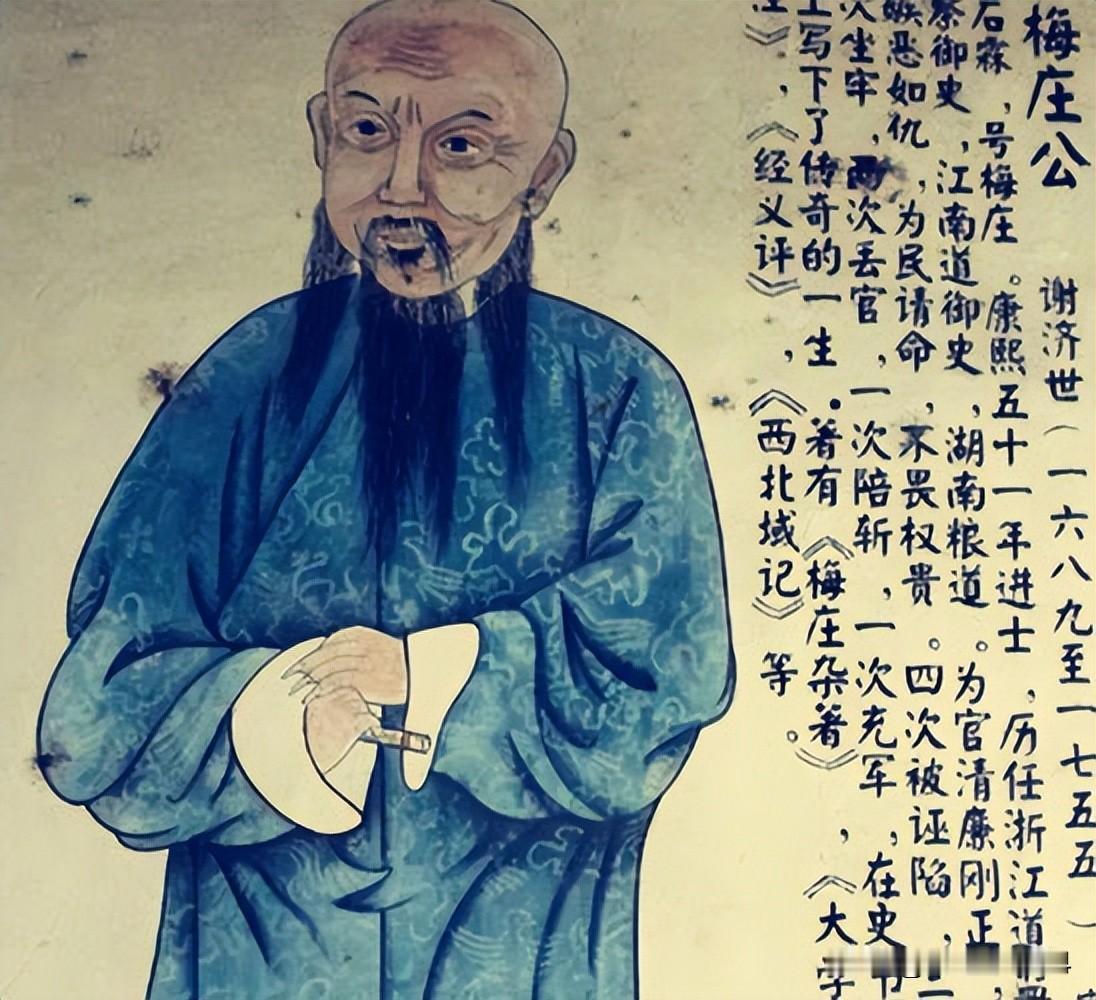 梅庄公
谢济世（一六八九至一七五五）
石霖，号梅庄。康熙五十一年进士，历任浙江道
察御史，江南道御史，湖南粮道。为官清廉刚正，
嫉恶如仇，为民请命，不畏权贵。四次被诬陷，
次坐牢，两次丢官，一次陪斩，一次充军，在史
上写下了传奇的一生。著有《梅庄杂著》，《大学
》，《经义评》，《西北域记》等。